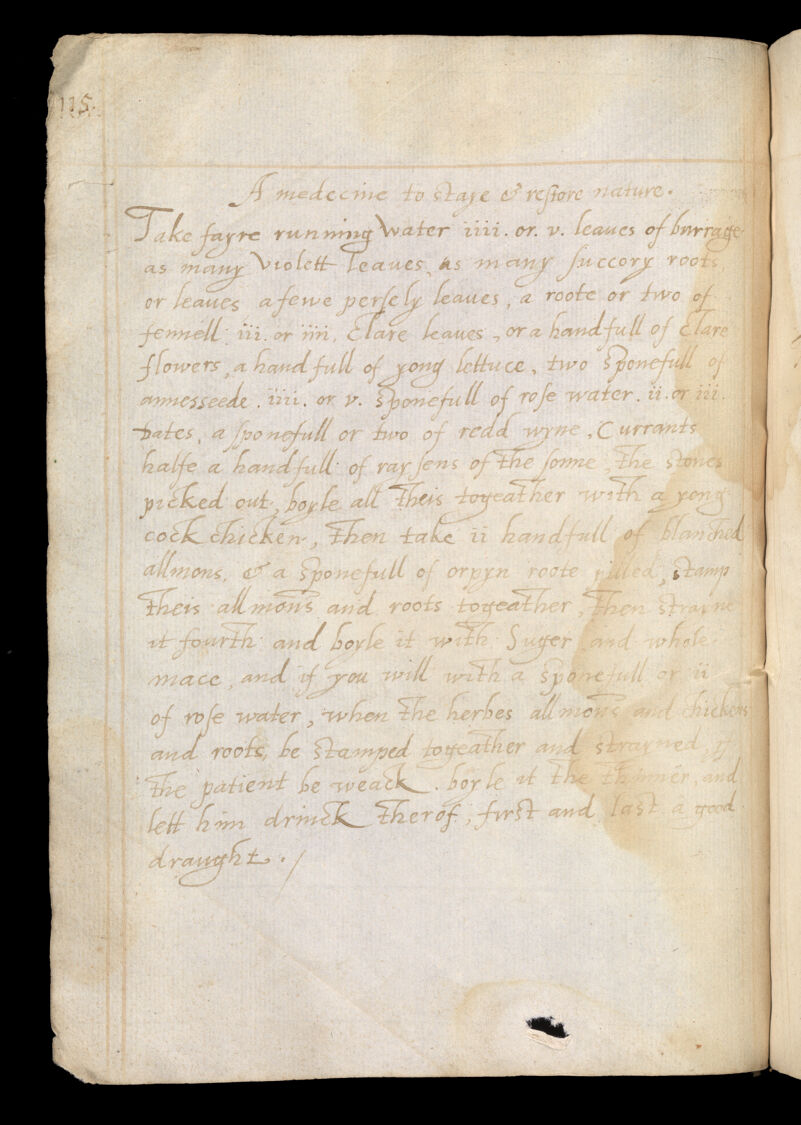 115.
A medecine to staye & restore nature.
Take fayre running water iiii. or. v. leaves of burrage
as many violett leaves, as many succory roots,
or leaves a fewe persely leaves, a roote or two of
fennell iii. or iiii. Clare leaves, or a handfull of Clare
flowers, a handfull of yong lettuce, two sponefull of
annesseede. iiii. or v. sponefull of rose water. ii. or iii.
Dates, a sponefull or two of redd wyne, Currants
halfe a handfull of raysens of the sonne, the stones
picked out, boyle all theis togeather with a yong
cock chicken, then take ii handfull of blanched
allmons, & a sponefull of orpyn roote pilled, stamp
theis allmons and roots togeather, then strayne
it fourth and boyle it with Suger and whole
mace, and if you will with a sponefull or ii
of rose water, when the herbes allmons and chickens
and roots, be stamped togeather and strayned, if
the patient be weack. boyle it the thinner, and
lett him drinck therof, first and last a good
draught. /